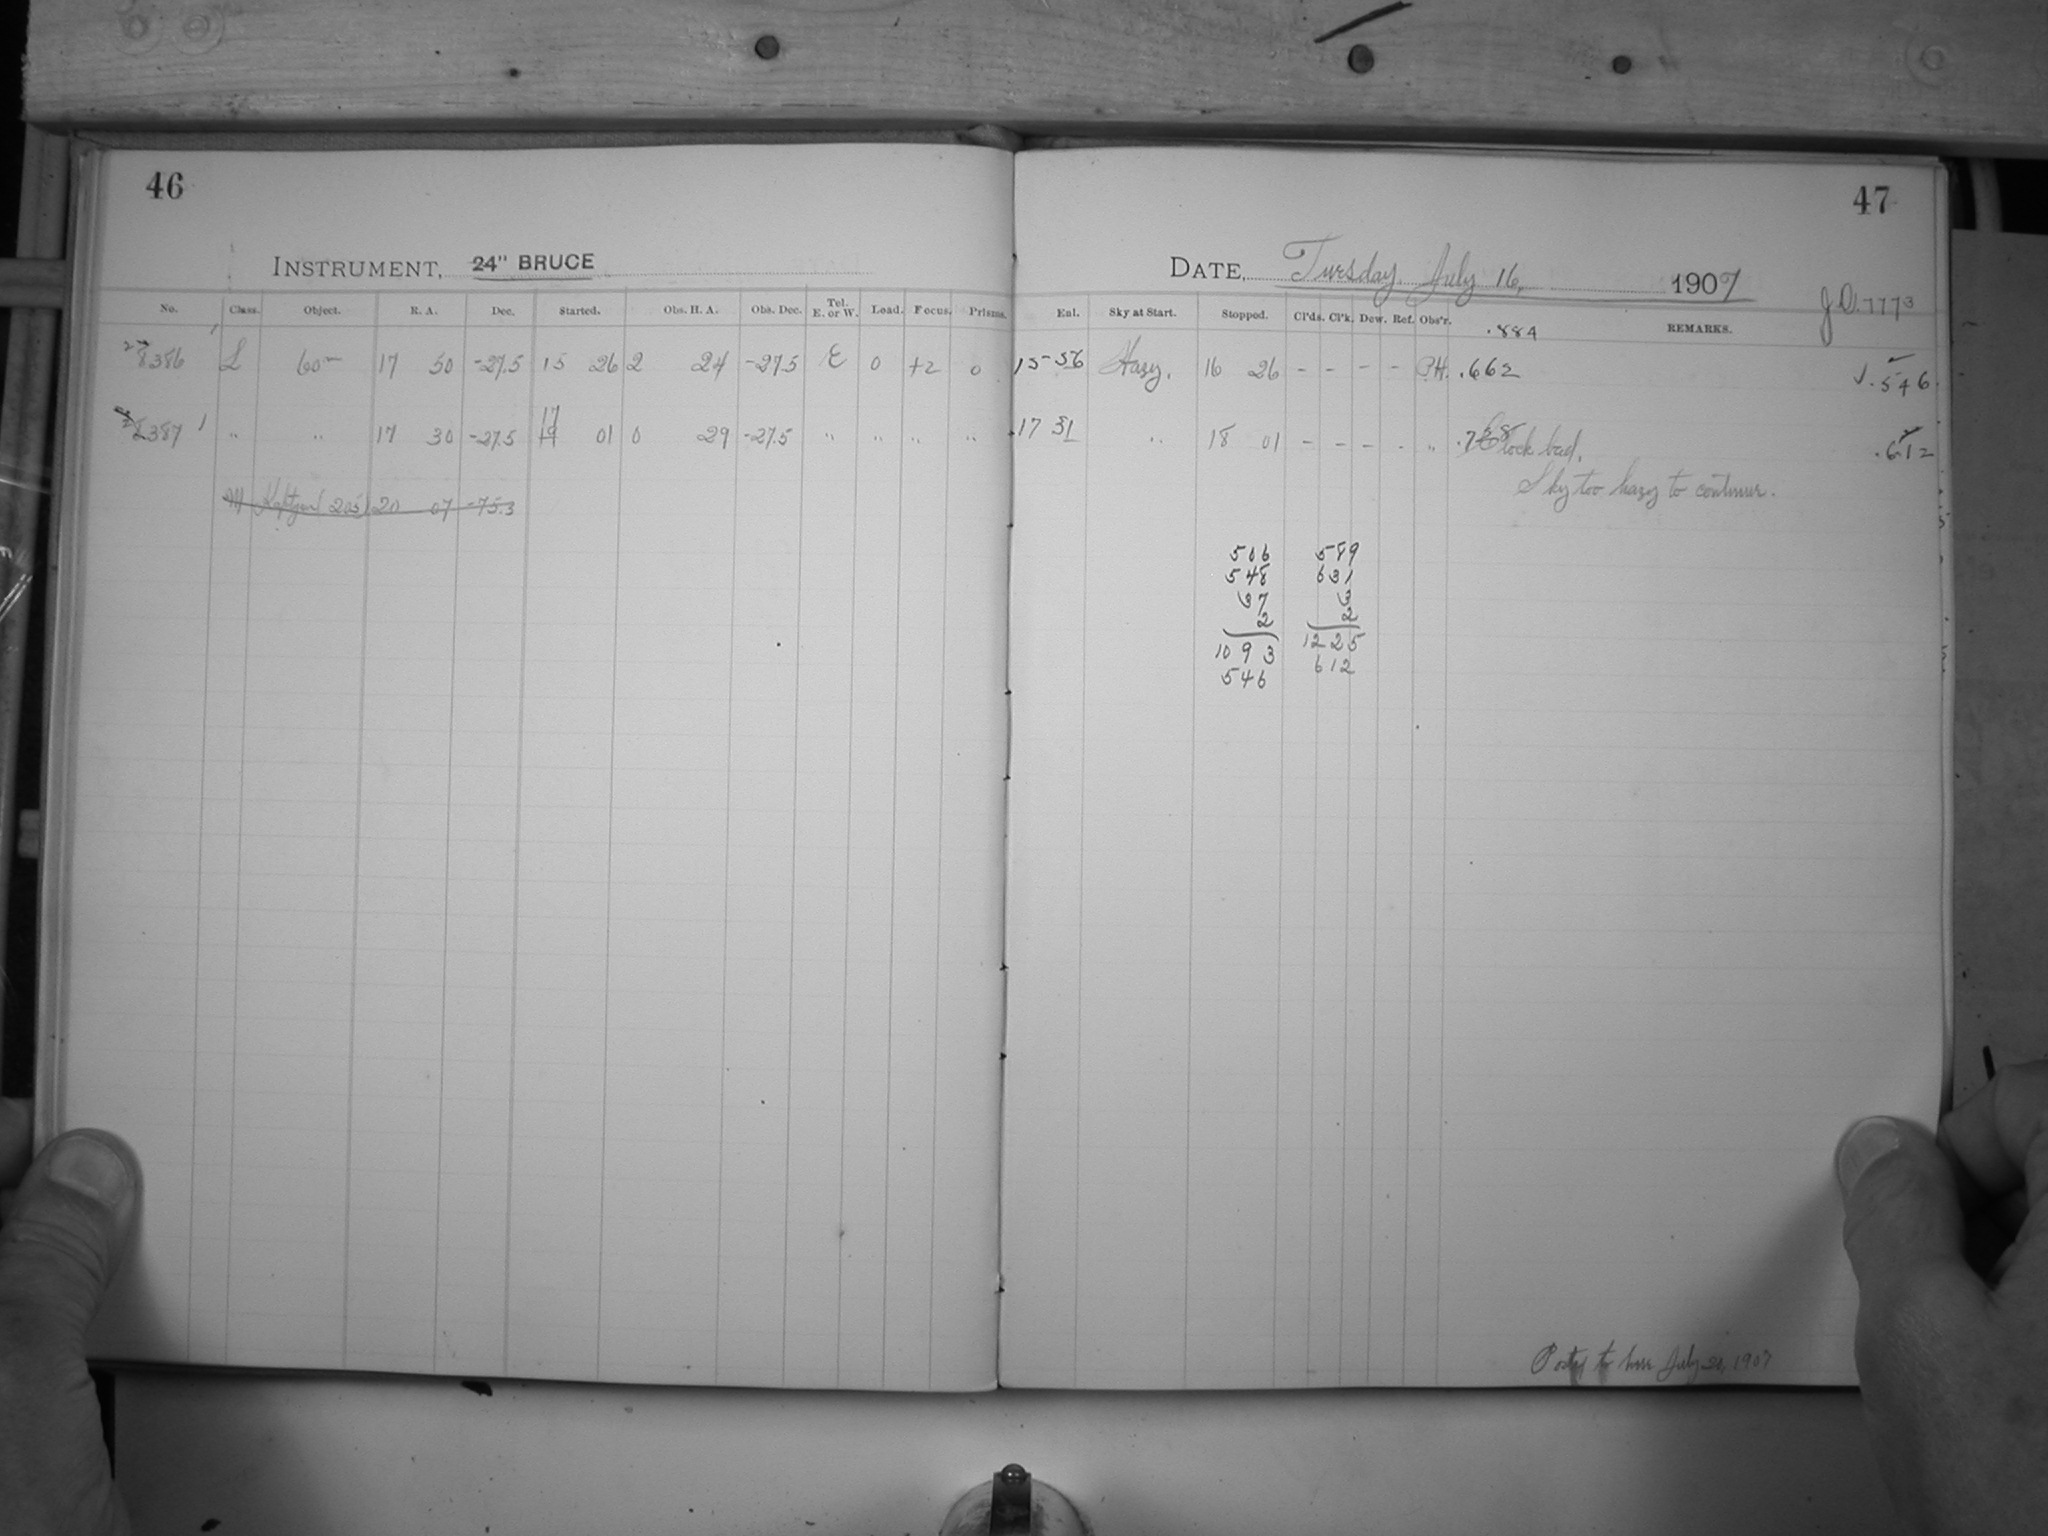 46
47
INSTRUMENT, 24" BRUCE
DATE, Tuesday, July 16, 1907
J.D. 7773
No. Class. Object. R. A. Dec. Started. Obs. H. A. Obs. Dec. Tel. E. or W. Load. Focus. Prisms.
Enl. Sky at Start. Stopped. Cl'ds. Cl'k. Dew. Ref. Obs'r. .884 REMARKS.
8386 L 60m 17 50 -27.5 15 26 2 24 -27.5 E 0 +2 0 15 56 Hazy. 16 26 - - - - PH. .662 .546
8387 " " 17 30 -27.5 17 01 0 29 -27.5 " " " " 17 31 " 18 01 - - - - " Clock bad. .612
Sky too hazy to continue.
M Kaptyn (205) 20 07 -75.3
506 589
548 631
37 3
2 2
1093 1225
546 612
Posted to here July 20, 1907